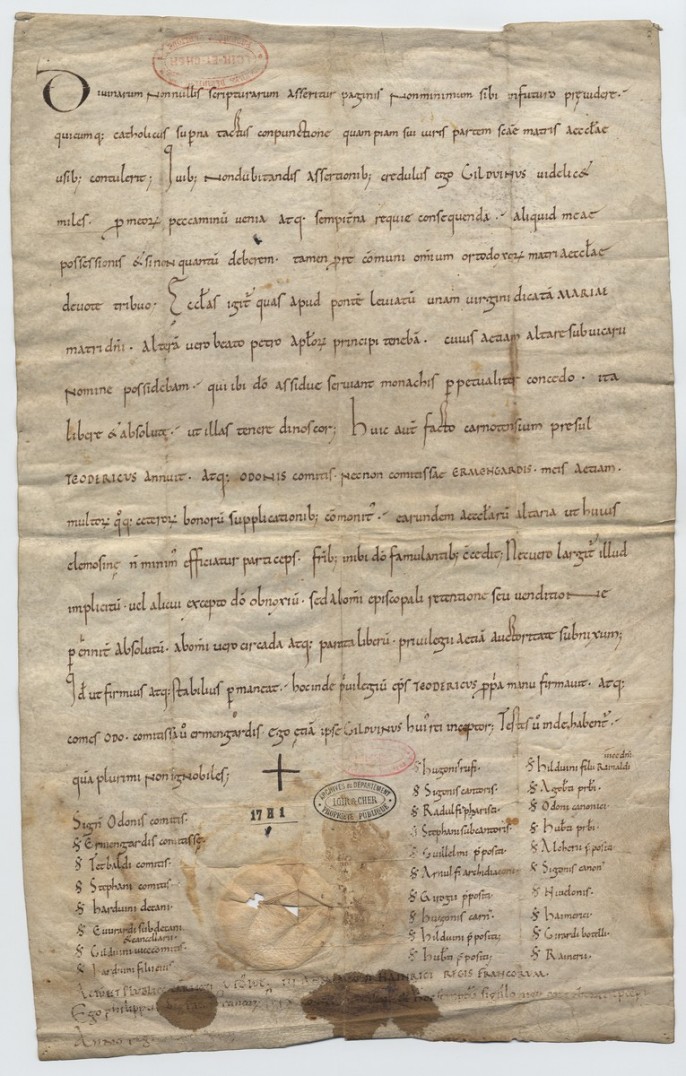 Divinarum Nonnullis scripturarum asseritur paginis Nonminimum sibi infuturo pręvidere.
quicumq; catholicus supna tactus conpunctione quampiam sui iuris partem scæ matris aeccłae
usib; contulerit; Quib; Nondubitandis assertionib; credulus ego GILDUINUS videlic&
miles. p meorꝝ peccaminū venia atq. sempitna requie consequenda. aliquid meae
possessionis & sinon quantū deberem. tamen prę cōmuni omium ortodoxorꝝ matri aeccłae
devote tribuo. Eccłas igit quas apud pontē leviatū unam virgini dicatā MARIAE
matri dñi. Altęrā vero beato petro aplorꝝ principi tenebā. cuius aetiam altare sub vicarii
Nomine possidebam. qui ibi dō assidue serviant monachis p petualiter concedo. ita
libere & absolutę. ut illas tenere dinoscor; huic aut facto carnotensium presul
TEODERICUS annuit. atq; ODONIS comitis. necnon comitissae ERMENGARDIS. meis aetiam.
multorꝝ qq; ceterorꝝ bonorū supplicationib; cōmonit. earundem aeccłarū altaria ut huius
elemosinę ñ minim efficiatur particeps. frib; inibi dō famulantib; ccedit; Necvero largit illud
implicitū. vel alicui excepto dō obnoxiū. sed ab omi episcopali retentione seu venditione
p ennit absolutū. abomi vero circada atq; parata liberū. privilegii aetiā auctoritate subnixum;
Id ut firmius atq; stabilius p maneat. hoc inde pvilegiū eps TEODERICUS ppa manu firmavit. atq;
comes ODO. comitissa ū ermengardis. Ego etiā ipse GILDUINUS hui rei inceptor; Testes ū inde habent.
quā plurimi Non ignobiles;
Sign Odonis comitis.
S Ermengardis comitissę.
S Tetbaldi comitis.
S Stephani comitis.
S harduini decani.
S Evrardi subdecani
& cancellarii.
S Gilduini vicecomitis.
S harduini filii eius
S hugonis rufi.
S Sigonis cantoris.
S Radulfi pharisti
S Stephani subcantoris.
S Guillelmi ppositi.
S Arnulfi archidiaconi
S Girogii ppositi
S hugonis carn.
S hilduini ppositi.
S hubti ppositi.
vicedñi
S hilduini filii Rainaldi
S Agobti prbi.
S Odoni canonici.
S hubti prbi.
S Alcherii pposit
S Sigonis canon
S Nivelonis.
S haimerici.
S Girardi botelli.
S Rainerii.
HAINRICI REGIS FRANCORUM.
Ego philippus
17 H 1
ARCHIVES DU DÉPARTEMENT
LOIR & CHER
PROPRIÉTÉ PUBLIQUE
LOIR-ET-CHER